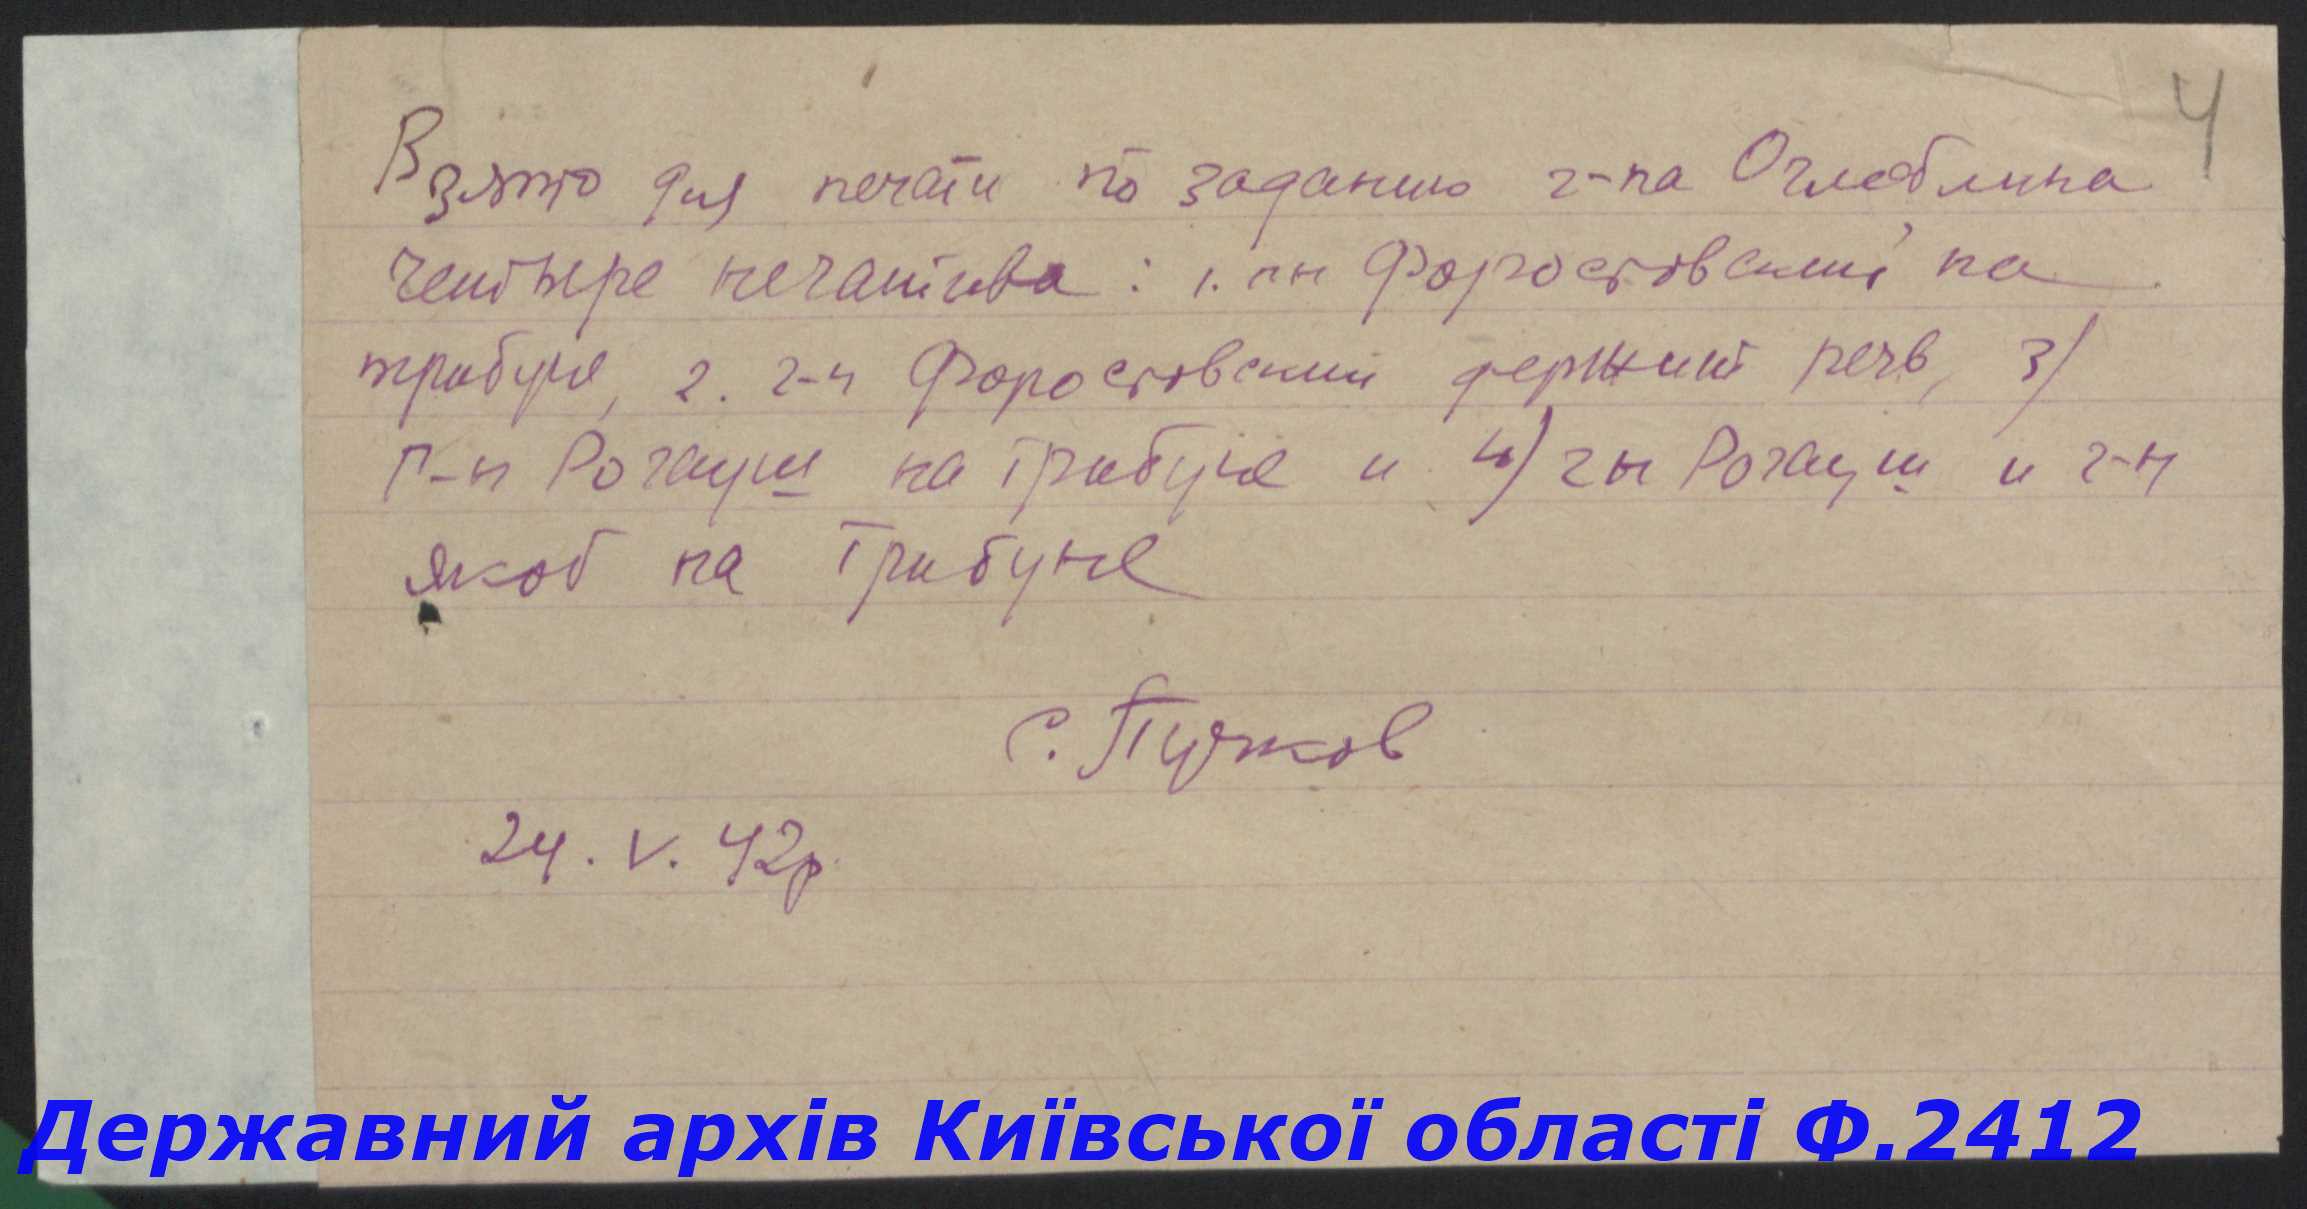 4
Взято для печати по заданию г-на Оглоблина
четыре негатива: 1. г-н Форостовский на
трибуне, 2. г-н Форостовский держит речь, 3/
г-н Рогауш на трибуне и 4) г-н Рогауш и г-н
Якоб на трибуне
С. Пучков
24. V. 42р.
Державний архів Київської області Ф.2412